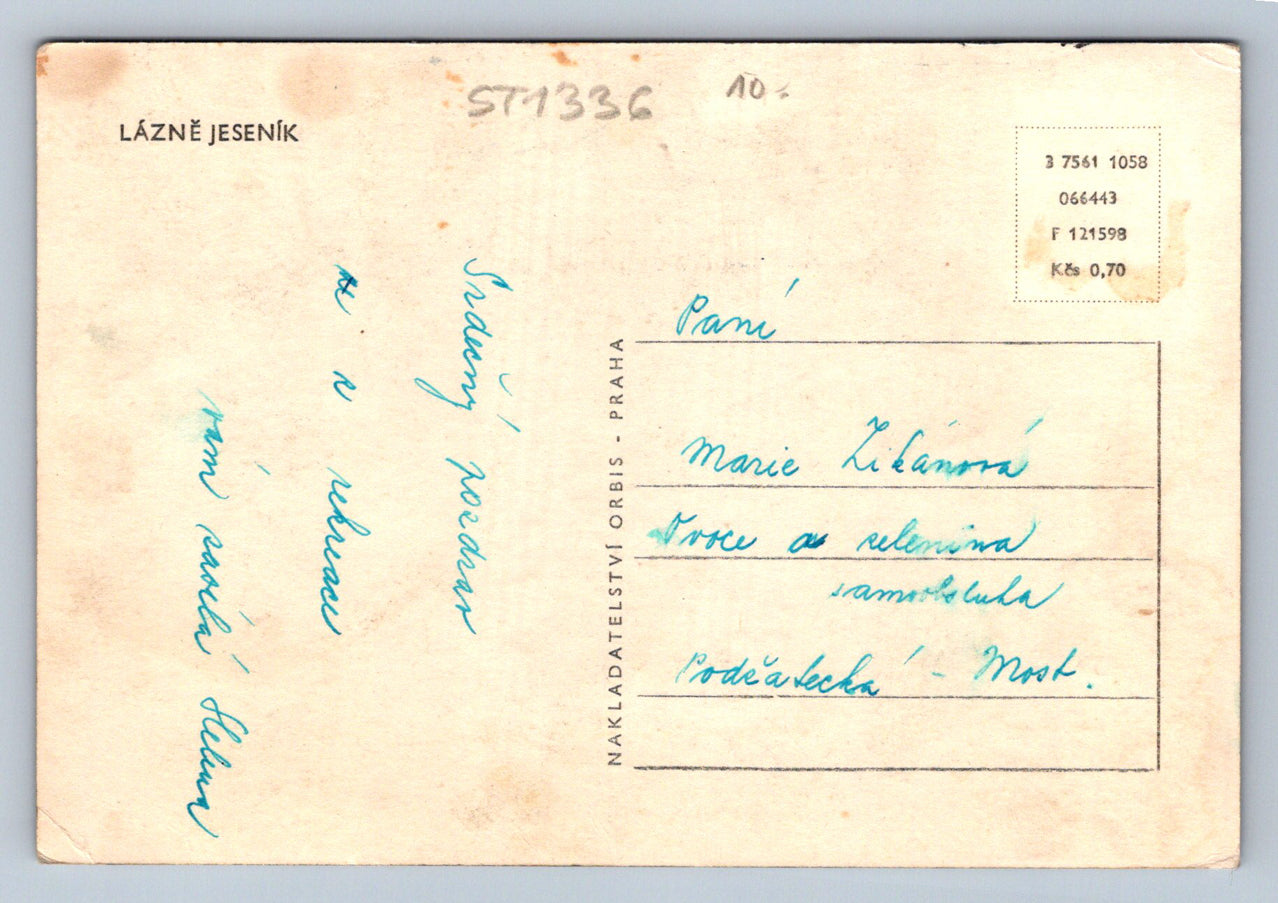 ST1336
10.-
LÁZNĚ JESENÍK
3 7561 1058
066443
F 121598
Kčs 0,70
Srdečný pozdrav
z rekreace
vám zasílá Helena
NAKLADATELSTVÍ ORBIS - PRAHA
Paní
Marie Zikánová
Ovoce a zelenina
samoobsluha
Podžatecká - Most.